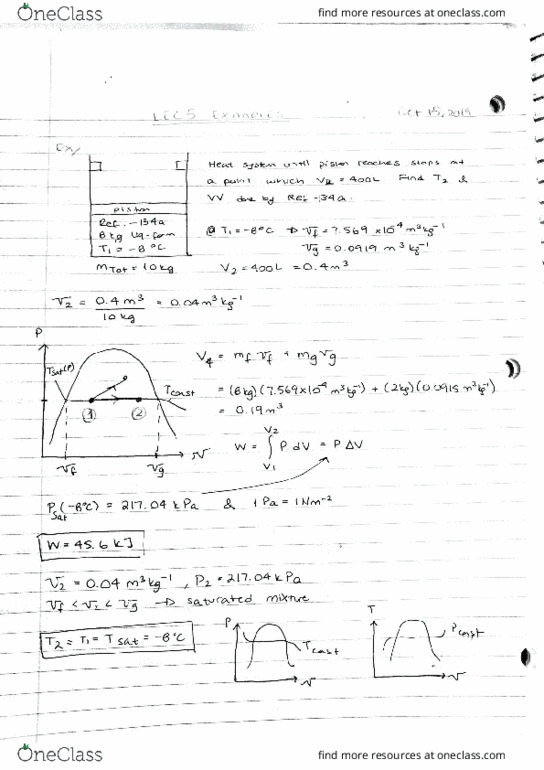 OneClass
find more resources at oneclass.com
LEC 5 Examples
Oct 15, 2019
Ex/
Heat system until piston reaches stops at
a point which V2 = 400L Find T2 &
W done by Ref -134a.
piston
Ref. -134a
8 kg liq-form
T1 = -8°C
MTot = 10kg
@ T1 = -8°C → vf = 7.569 ×10⁻⁴ m³kg⁻¹
vg = 0.0919 m³kg⁻¹
V2 = 400L = 0.4m³
v2 = 0.4m³ / 10 kg = 0.04m³kg⁻¹
P
Tsat(P)
Tconst
① ②
vf vg v
V1 = mf vf + mg vg
= (8kg)(7.569×10⁻⁴ m³kg⁻¹) + (2kg)(0.0915 m³kg⁻¹)
= 0.19m³
W = ∫ P dV = P ΔV
V2
V1
Psat(-8°C) = 217.04 kPa & 1 Pa = 1Nm⁻²
W = 45.6 kJ
v2 = 0.04 m³kg⁻¹, P2 = 217.04 kPa
vf < v2 < vg → saturated mixture
T2 = T1 = Tsat = -8°C
P
Tconst
v
T
Pconst
v
OneClass
find more resources at oneclass.com